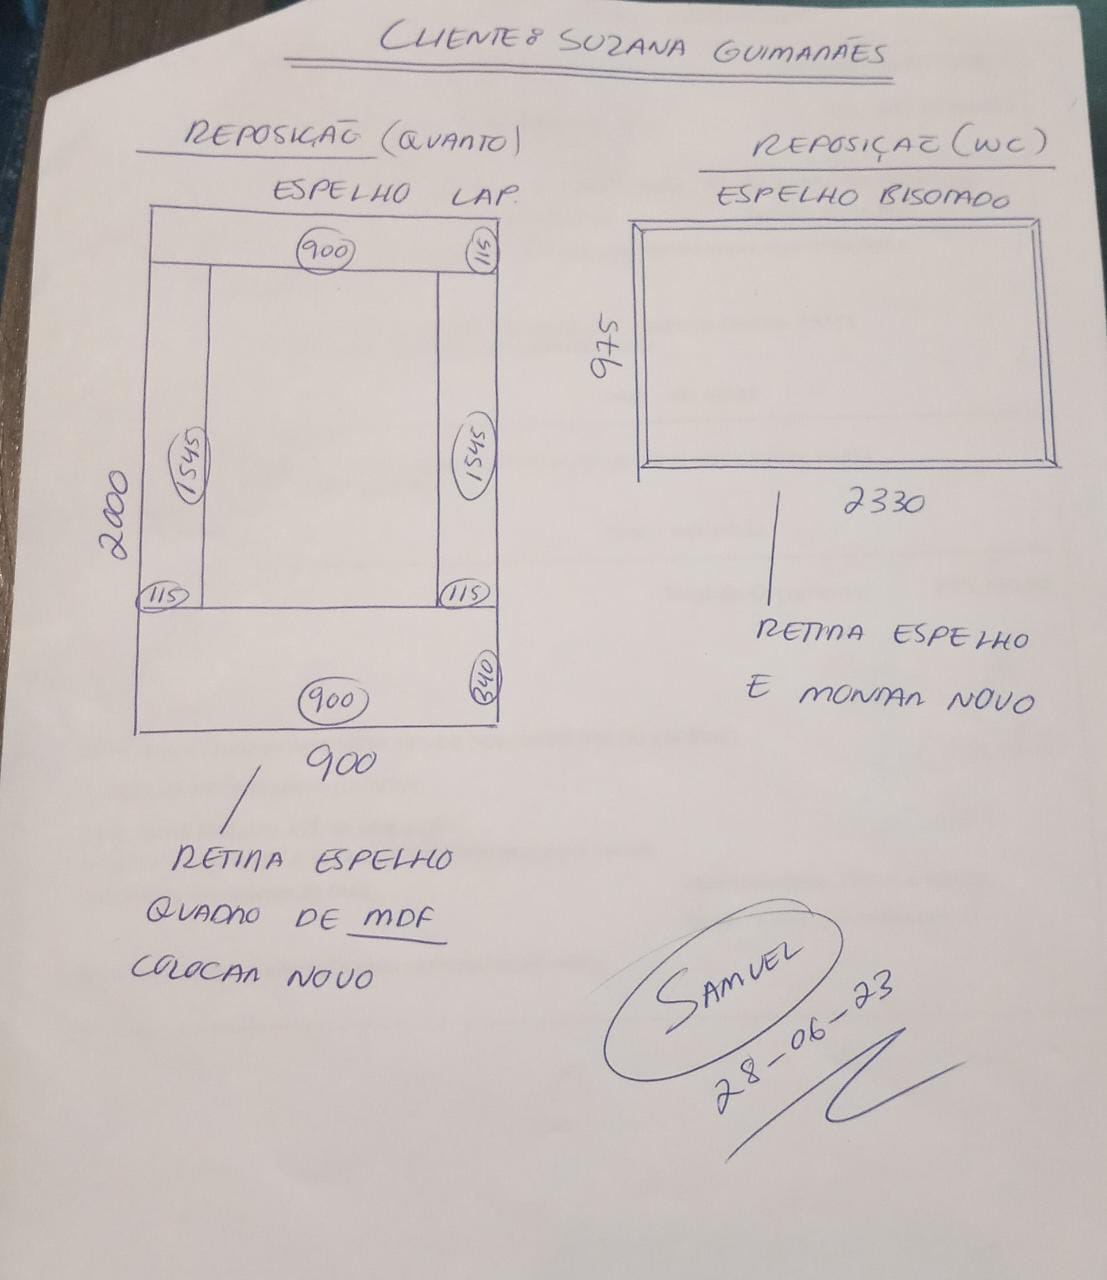 CLIENTE: SUZANA GUIMARÃES
REPOSIÇÃO (QUARTO)
ESPELHO LAP.
900
115
1545
1545
2000
115
115
900
340
900
RETIRA ESPELHO
QUADRO DE MDF
COLOCAR NOVO
REPOSIÇÃO (WC)
ESPELHO BISOTADO
975
2330
RETIRA ESPELHO
E MONTAR NOVO
SAMUEL
28-06-23